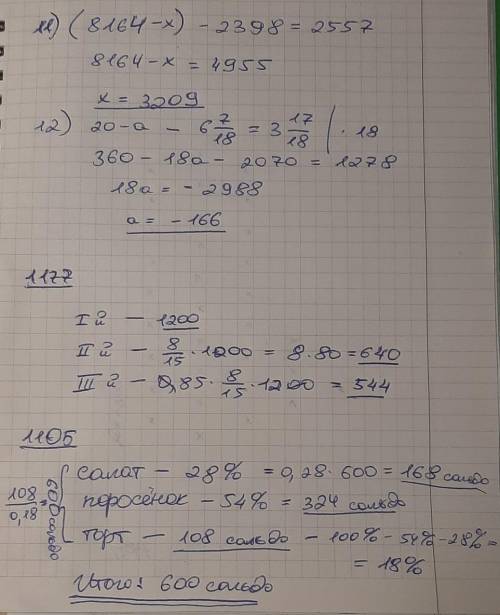 11) (8164-x) - 2398 = 2557
8164-x = 4955
x = 3209
12) 20-a - 6 7/18 = 3 17/18 | · 18
360 - 18a - 2070 = 1278
18a = - 2988
a = - 166
1177
I й - 1200
II й - 8/15 · 1200 = 8·80 = 640
III й - 0,85 · 8/15 · 1200 = 544
1105
108/0,18 = 600 сольдо
салат - 28% = 0,28 · 600 = 168 сольдо
поросёнок - 54% = 324 сольдо
торт - 108 сольдо - 100% - 54% - 28% =
= 18%
Итого: 600 сольдо